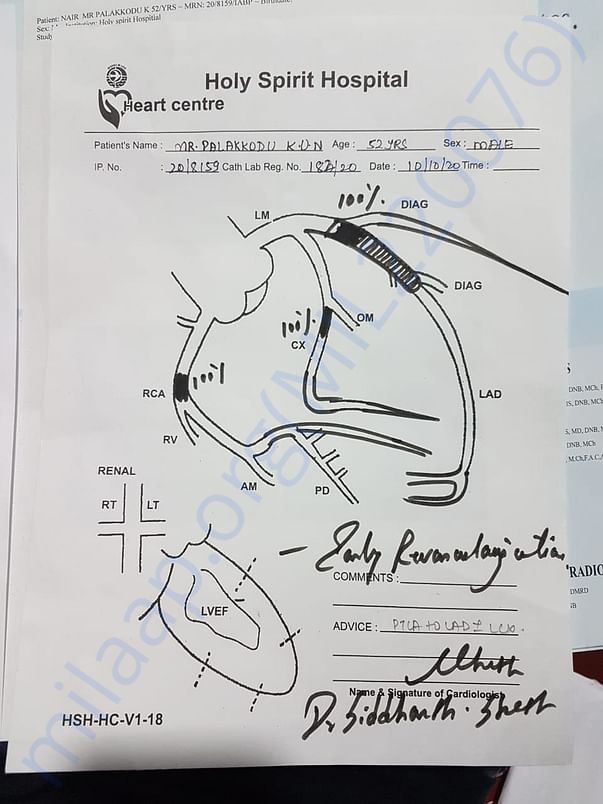 Patient: NAIR MR PALAKKODU K 52/YRS ~ MRN: 20/8159/IABP ~
Holy spirit Hospital
Study
Holy Spirit Hospital
Heart centre
Patient's Name : MR. PALAKKODU K.U.N Age : 52 YRS Sex : MALE
IP. No. : 20/8159 Cath Lab Reg. No. Date : 10/10/20 Time :
100%. DIAG
LM
DIAG
100%. OM
CX
RCA 100%
LAD
RV
AM
PD
RENAL
RT LT
LVEF
– Early Revascularization
COMMENTS :
ADVICE : PTCA TO LAD
Name & Signature of Cardiologist
Dr. Siddharth. Sheth
HSH-HC-V1-18
DNB, MCh
RADIO
DMRD
milaap.org(MIL220076)